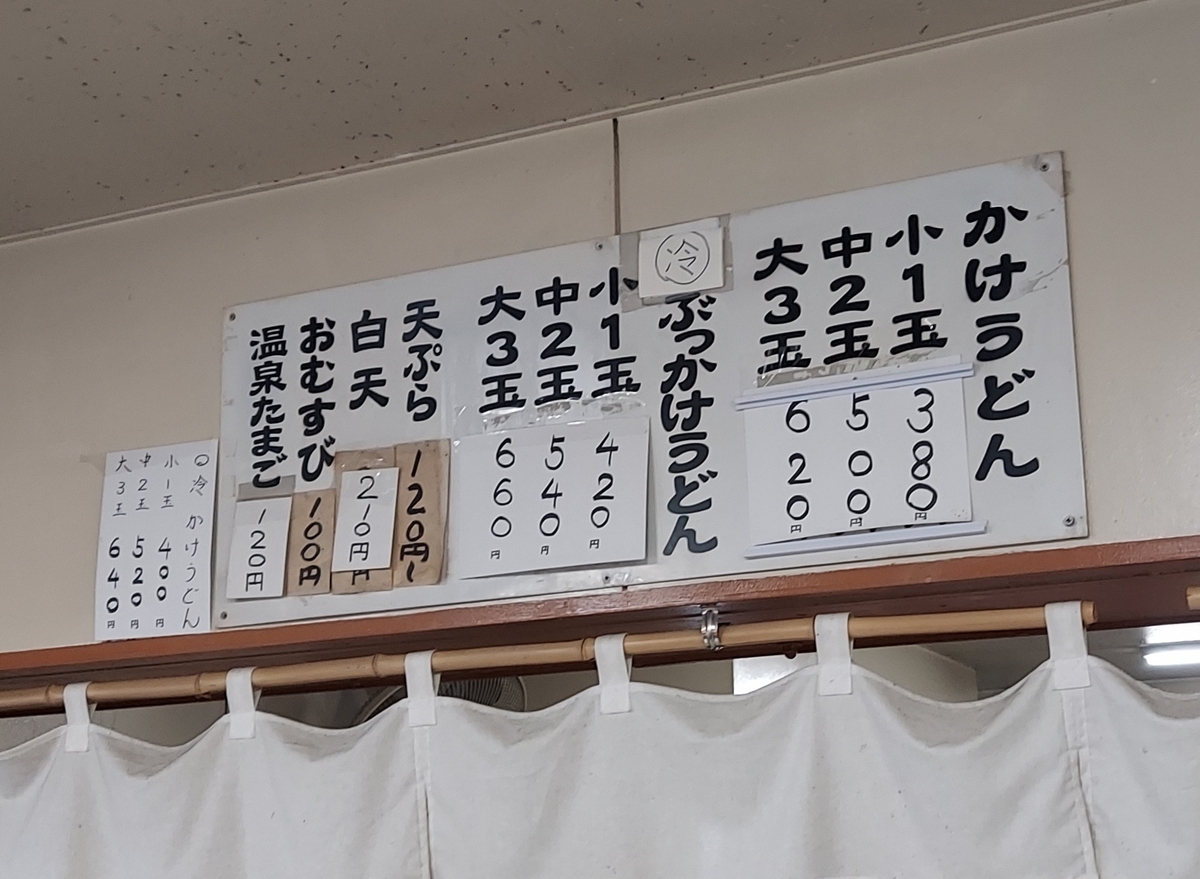 かけうどん
小1玉 380円
中2玉 500円
大3玉 620円
冷
ぶっかけうどん
小1玉 420円
中2玉 540円
大3玉 660円
天ぷら 120円~
白天 210円
おむすび 100円
温泉たまご 120円
冷 かけうどん
小1玉 400円
中2玉 520円
大3玉 640円